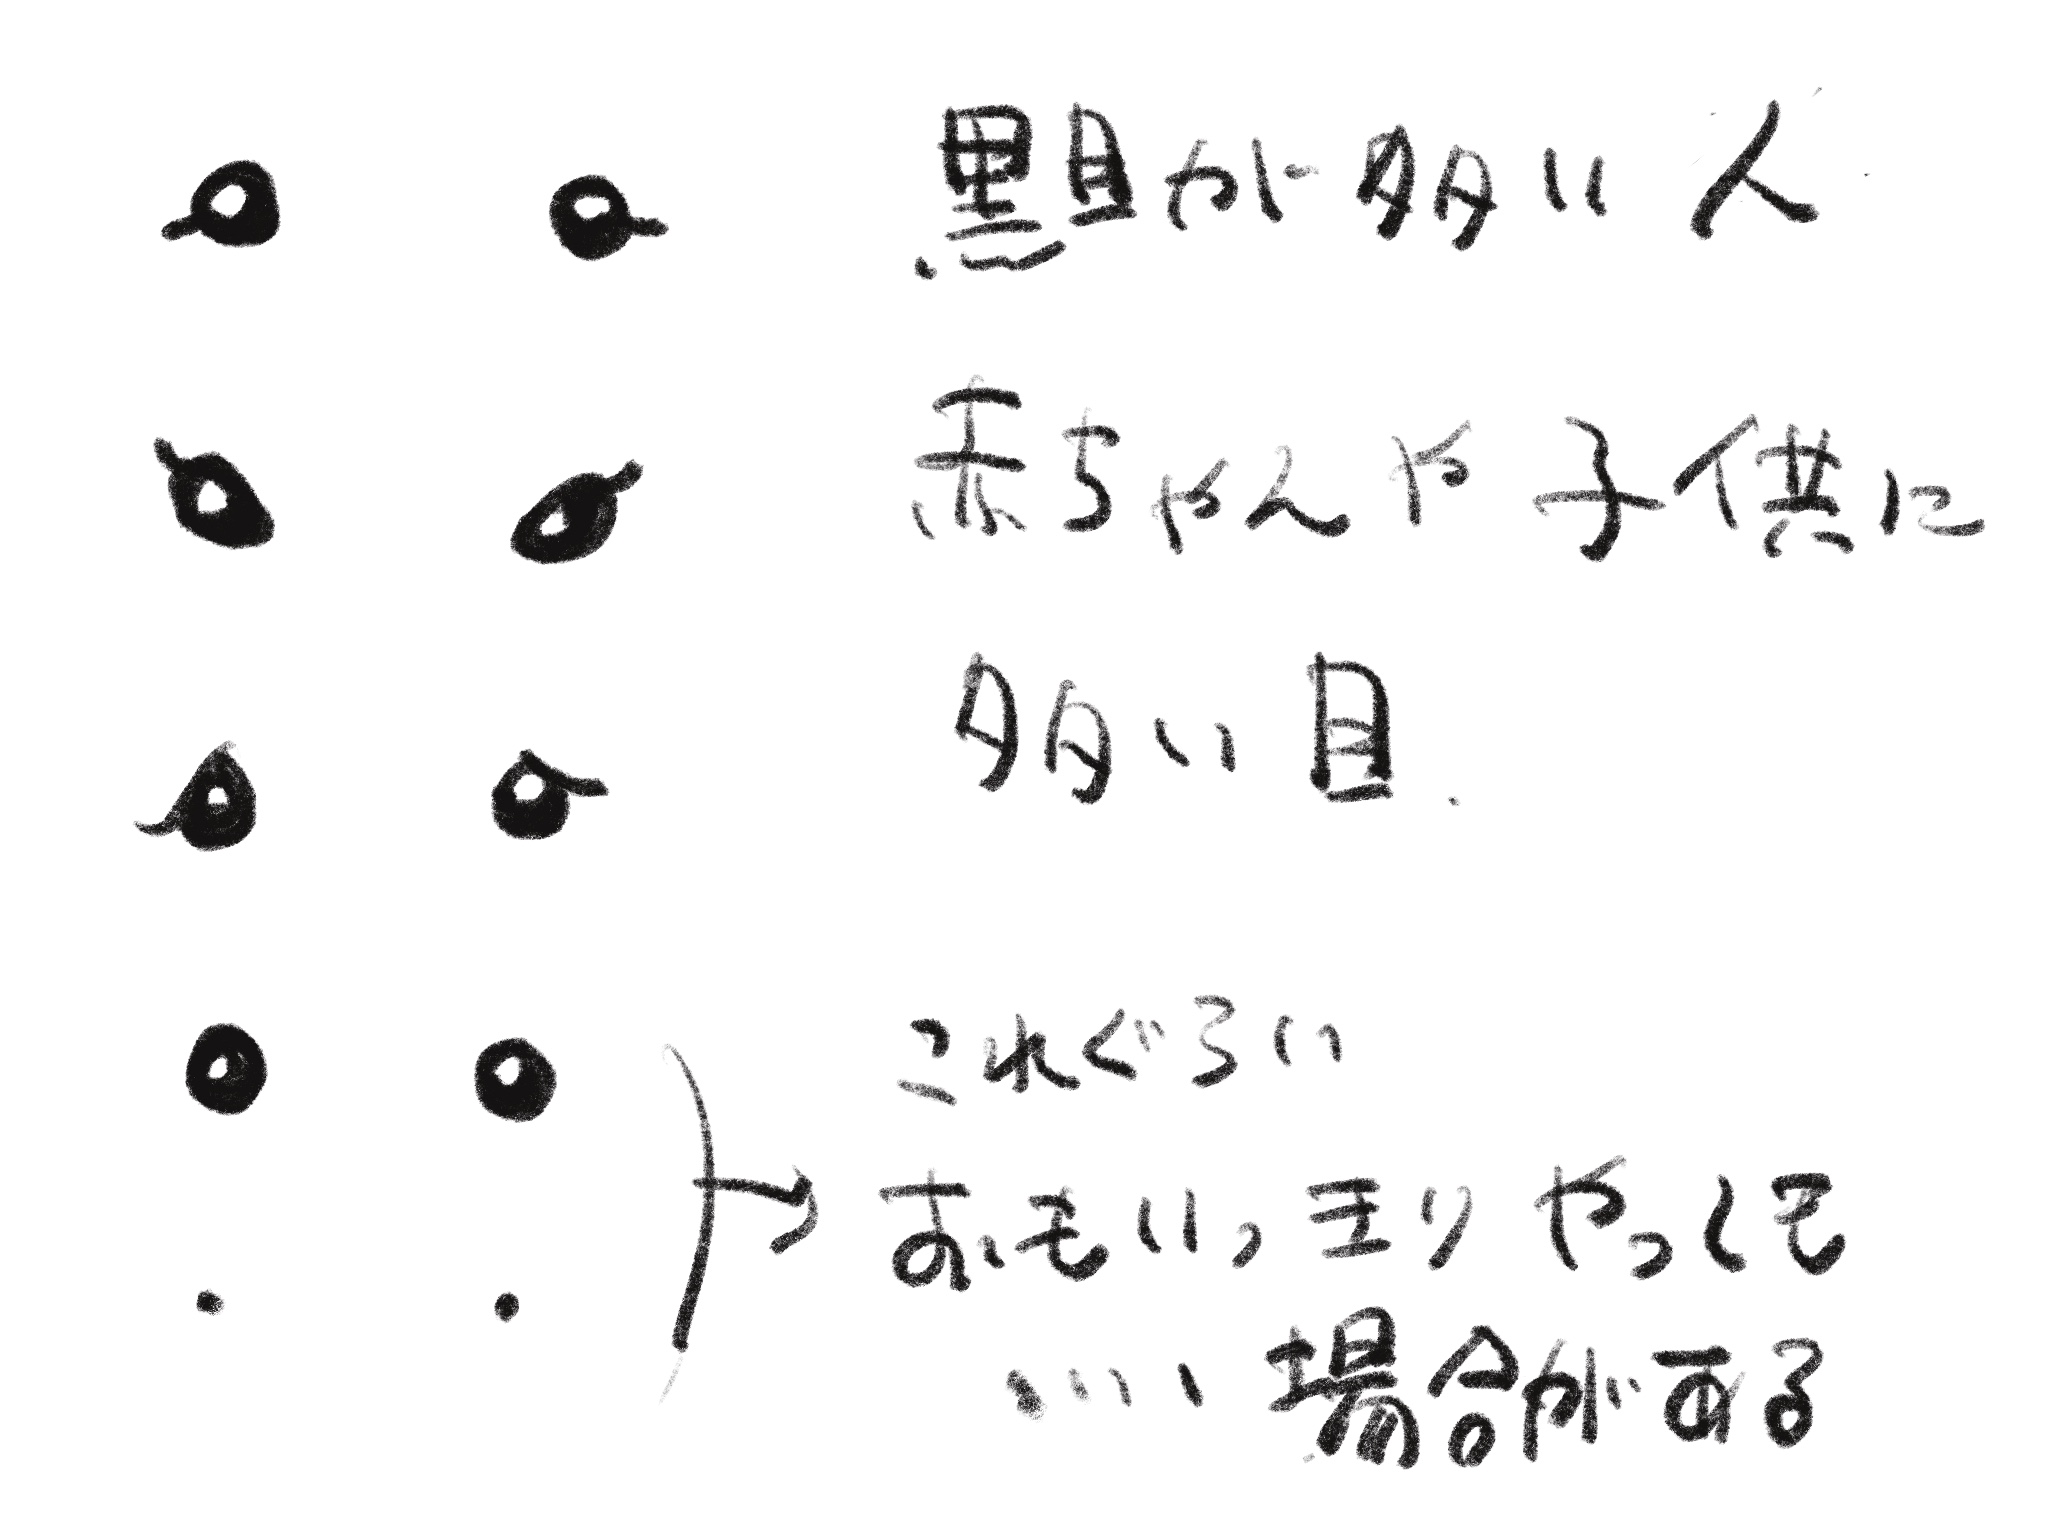 黒目が多い人
赤ちゃんや子供に
多い目
これぐらい
おもいっきりやっても
いい場合がある